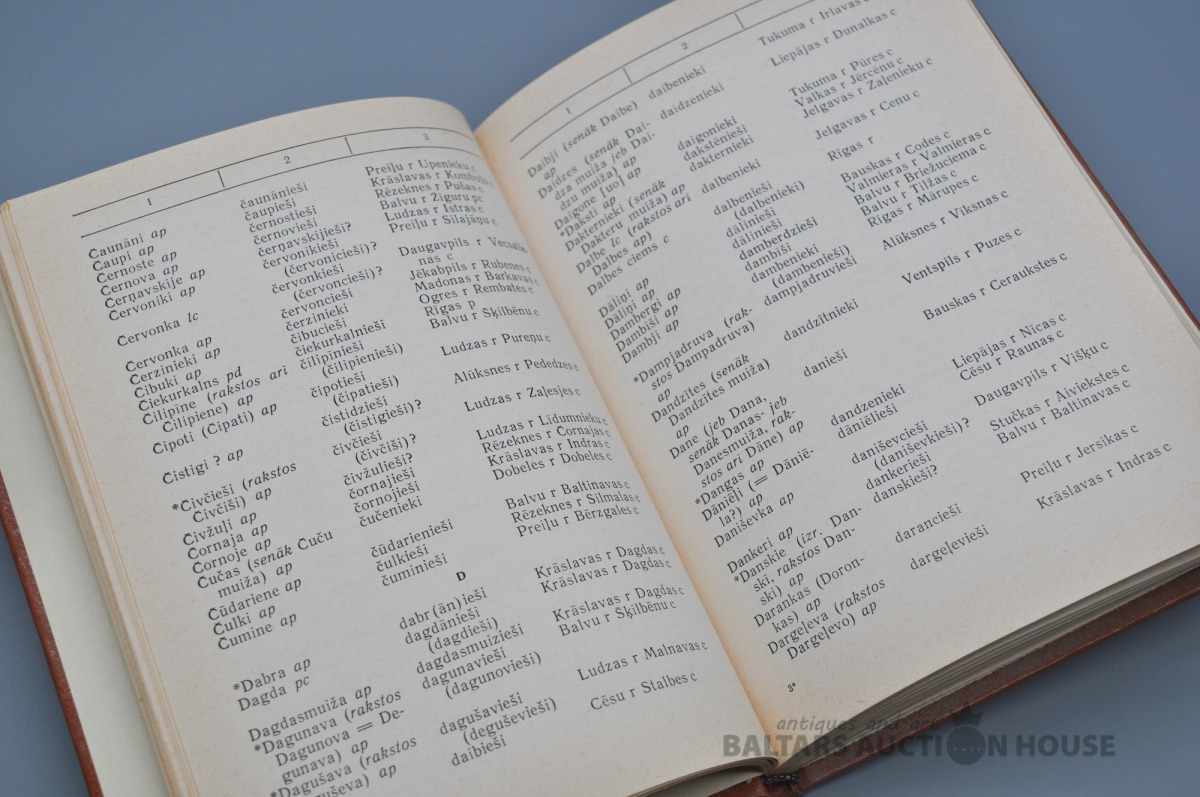 1 2 3
Čaunāni ap čaunānieši Preiļu r Upenieku c
Čaupi ap čaupieši Krāslavas r Kombuļu c
Černoste ap černostieši Rēzeknes r Pušas c
Černova ap černovieši Balvu r Žīguru pc
Čerņavskije ap čerņavskijieši? Ludzas r Istras c
Červoniki ap červonikieši Preiļu r Silajāņu c
(červonicieši)?
Červonka lc červonkieši Daugavpils r Vecsalie-
(červoncieši)? nas c
Červonka ap červoncieši Jēkabpils r Rubenes c
Čerzinieki ap čerzinieki Madonas r Barkavas c
Čibuki ap čibucieši Ogres r Rembates c
Čiekurkalns pd čiekurkalnieši Rīgas p
Čilipine (rakstos ari čilipinieši Balvu r Šķilbēnu c
Čilipiene) ap (čilipienieši)
Čipoti (Čipati) ap čipotieši Ludzas r Pureņu c
(čipatieši)
Čistigi ? ap čistidzieši Alūksnes r Pededzes c
(čistigieši)?
*Čivčieši (rakstos čivčieši Ludzas r Zaļesjes c
Čivčiši) ap (čivčiši)?
Čivžuļi ap čivžulieši? Ludzas r Lidumnieku c
Čornaja ap čornajieši Rēzeknes r Čornajas c
Čornoje ap čornojieši Krāslavas r Indras c
Čučas (senāk Čuču čučenieki Dobeles r Dobeles c
muiža) ap
Čūdariene ap čūdarienieši Balvu r Baltinavas c
Čulki ap čulkieši Rēzeknes r Silmalas c
Čumine ap čuminieši Preiļu r Bērzgales c
D
*Dabra ap dabr(ān)ieši Krāslavas r Dagdas c
Dagda pc dagdānieši Krāslavas r Dagdas c
(dagdieši)
Dagdasmuiža ap dagdasmuizieši Krāslavas r Dagdas c
*Dagunava (rakstos dagunavieši Balvu r Šķilbēnu c
Dagunova = De- (dagunovieši)
gunava) ap
*Dagušava (rakstos dagušavieši Ludzas r Malnavas c
guševa) ap (deguševieši)
daibieši Cēsu r Stalbes c
1 2
Daibji (senāk Daibe) daibenieki Tukuma r Irlavas c
ap
Daidzes (senāk Dai- daidzenieki Liepājas r Dunalkas c
dza muiža jeb Dai-
dzu muiža) ap
Daigone [uo] ap daigonieki Tukuma r Pūres c
*Daksti ap dakstēnieši Valkas r Jērcēnu c
Dakternieki (senāk dakternieki Jelgavas r Zaļenieku c
Dakteru muiža) ap
Dalbe lc (rakstos ari dalbenieki Jelgavas r Cenu c
Dalbes ap)
Dalbes ciems c dalbenieši Rīgas r
(dalbenieki)
Dāliņi ap dālinieši Bauskas r Codes c
Dāliņi ap dālinieši Valmieras r Valmieras c
Dambergi ap damberdzieši Balvu r Briežuciema c
Dambiši ap dambiši Balvu r Tilžas c
Dambji ap dambenieki Rīgas r Mārupes c
(dambenieši)
*Dampjadruva (rak- dampjadruvieši Alūksnes r Viksnas c
stos Dampadruva)
ap
Dandzītes (senāk dandzītnieki Ventspils r Puzes c
Dandzītes muiža)
ap
Dane (jeb Dana, danieši Bauskas r Ceraukstes c
senāk Danas- jeb
Danesmuiža, rak-
stos ari Dāne) ap
*Dangas ap dandzenieki Liepājas r Nīcas c
Dāniēļi (= Dāniē- dāniēlieši Cēsu r Raunas c
ļa?) ap
Daniševka ap daniševcieši Daugavpils r Višķu c
(daniševkieši)?
Dankeri ap dankerieši Stučkas r Aiviekstes c
*Danskie (izr. Dan- danskieši? Balvu r Baltinavas c
ski, rakstos Dan-
ski) ap
Darankas (Doron- darancieši Preiļu r Jersikas c
kas) ap
Dargeļeva (rakstos dargeļevieši Krāslavas r Indras c
Dargeļevo) ap
3*
antiques and art
BALTARS AUCTION HOUSE